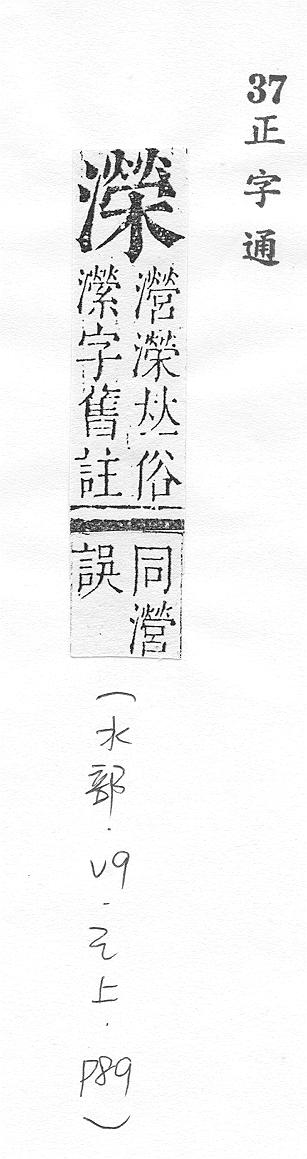 37 正字通
濚
瀯濚𠀤俗
瀠字舊註
同瀯
誤
(水部．V9．巳上．P89)